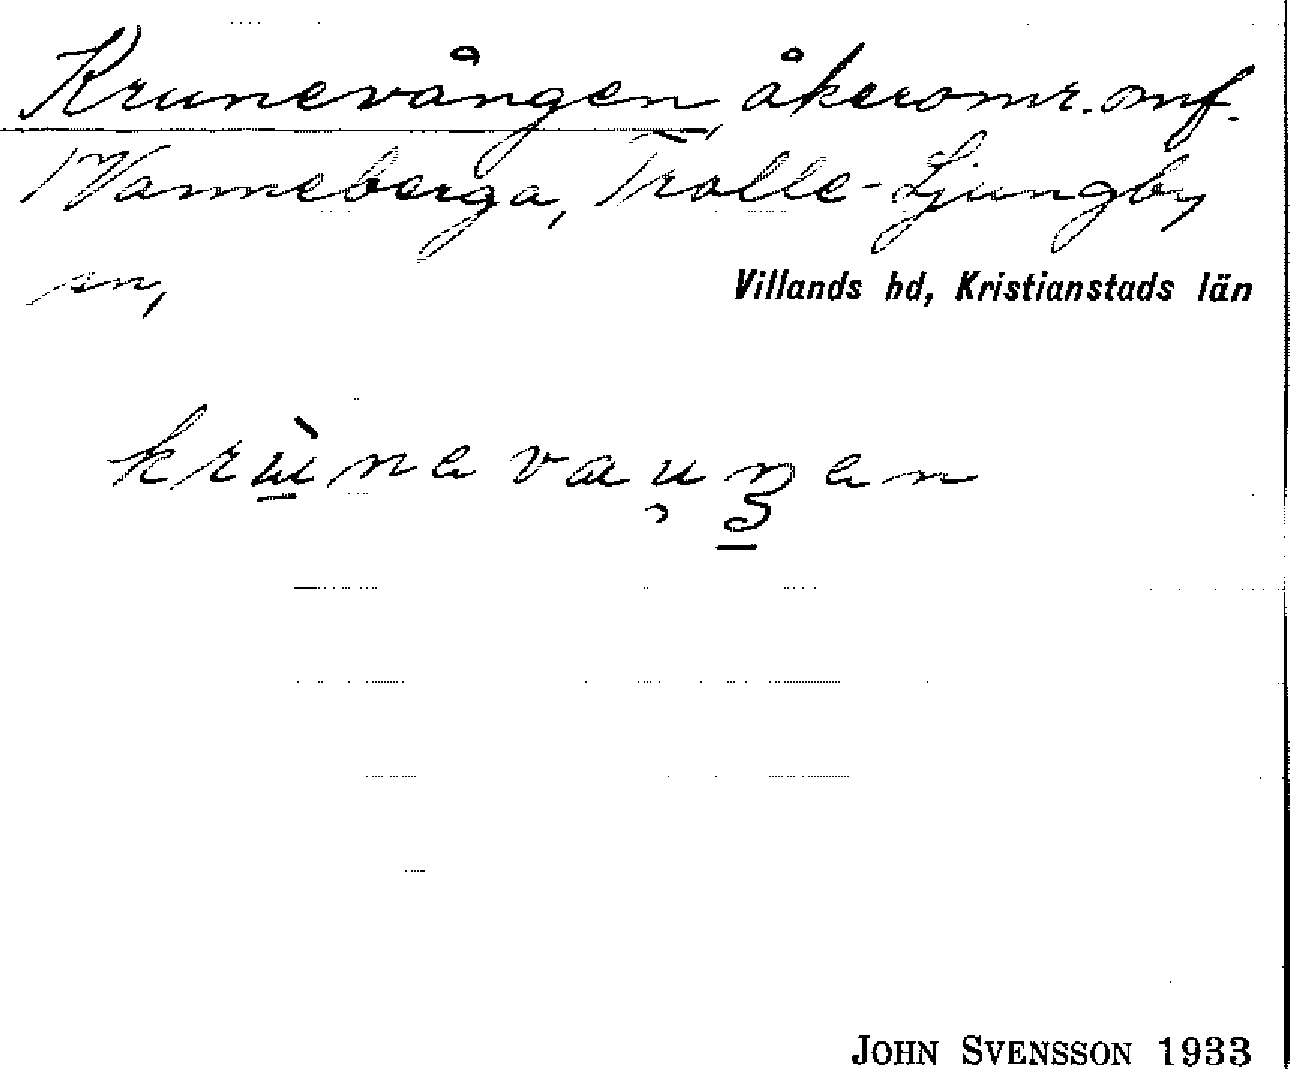 Krunevången, åkeromr. mf.
Vanneberga, Trolle-Ljungby
sn,
Villands hd, Kristianstads län
JOHN SVENSSON 1933